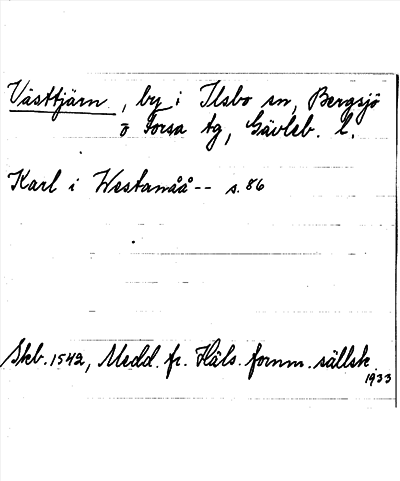 Västtjärn, by i Ilsbo sn, Bergsjö
o Forsa tg, Gävleb. l.
Karl i Westanåå-- s. 86
Skb. 1542, Medd. fr. Häls. fornm. sällsk.
1933